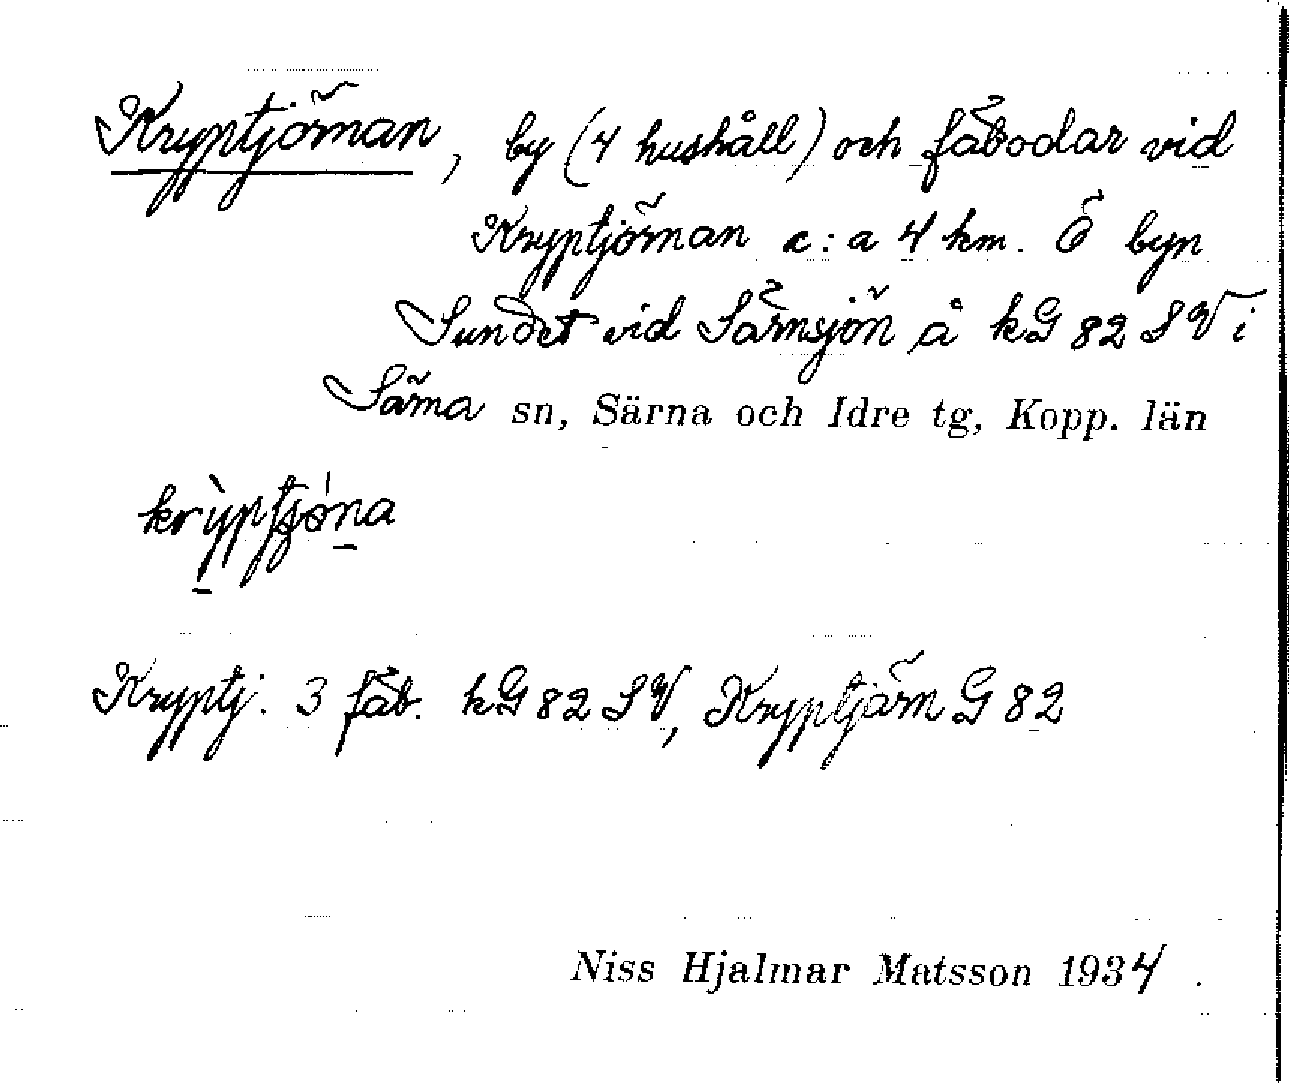 Kryptjörnan, by (4 hushåll) och fäbodar vid
Kryptjörnan c:a 4 km. Ö byn
Sundet vid Särnsjön å kG 82 SV i
Särna sn, Särna och Idre tg, Kopp. län
krỳptjǿna
Kryptj. 3 fäb. kG 82 SV, Kryptjärn G 82
Niss Hjalmar Matsson 1934.